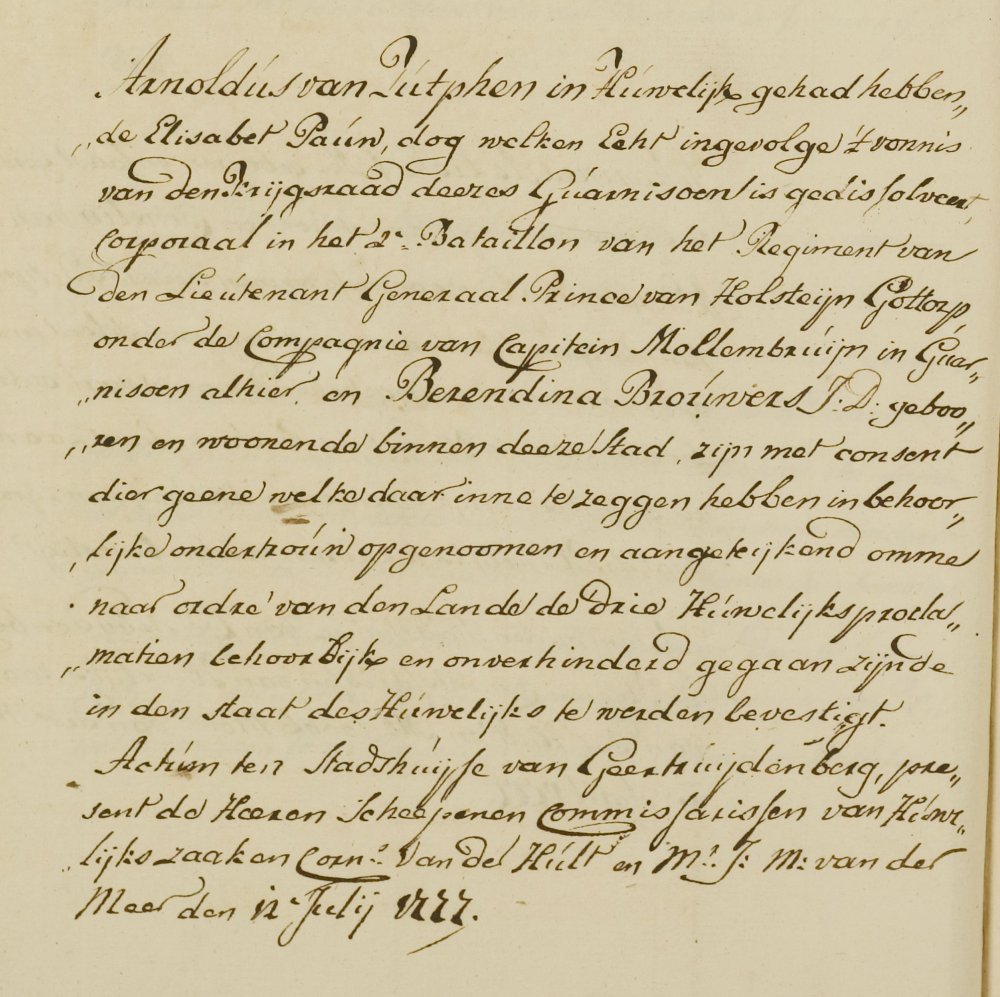 Arnoldús van Zútphen in Húwelijk gehad hebben„
„de Elisabet Paún, dog welken Echt ingevolge 't vonnis
van den Krijgsraad deezes Gúarnisoen is gedissolveert,
Corporaal in het 2e. Bataillon van het Regiment van
den Lieútenant Generaal Prince van Holsteijn Gottorp
onder de Compagnie van Capitein Mollembrúijn in Gúar„
„nisoen alhier, en Berendina Broúwers J: D: geboo„
„ren en woonende binnen deeze Stad, zijn met consent
dier geene welke daar inne te zeggen hebben in behoor„
„lijke ondertroúw opgenoomen en aangeteijkend omme
naar ordre van den Lande de drie Húwelijks procla„
„matien behoorlijk en onverhinderd gegaan zijnde
in den staat des Húwelijks te werden bevestigt.
Actúm ten Stadshúijse van Geertruijdenberg, pre„
sent de Heeren Scheepenen Commissarissen van Húwe„
„lijks zaaken Corns. van de Húlt en Mr. J: M: van der
Meer den 12e Julij 1777.